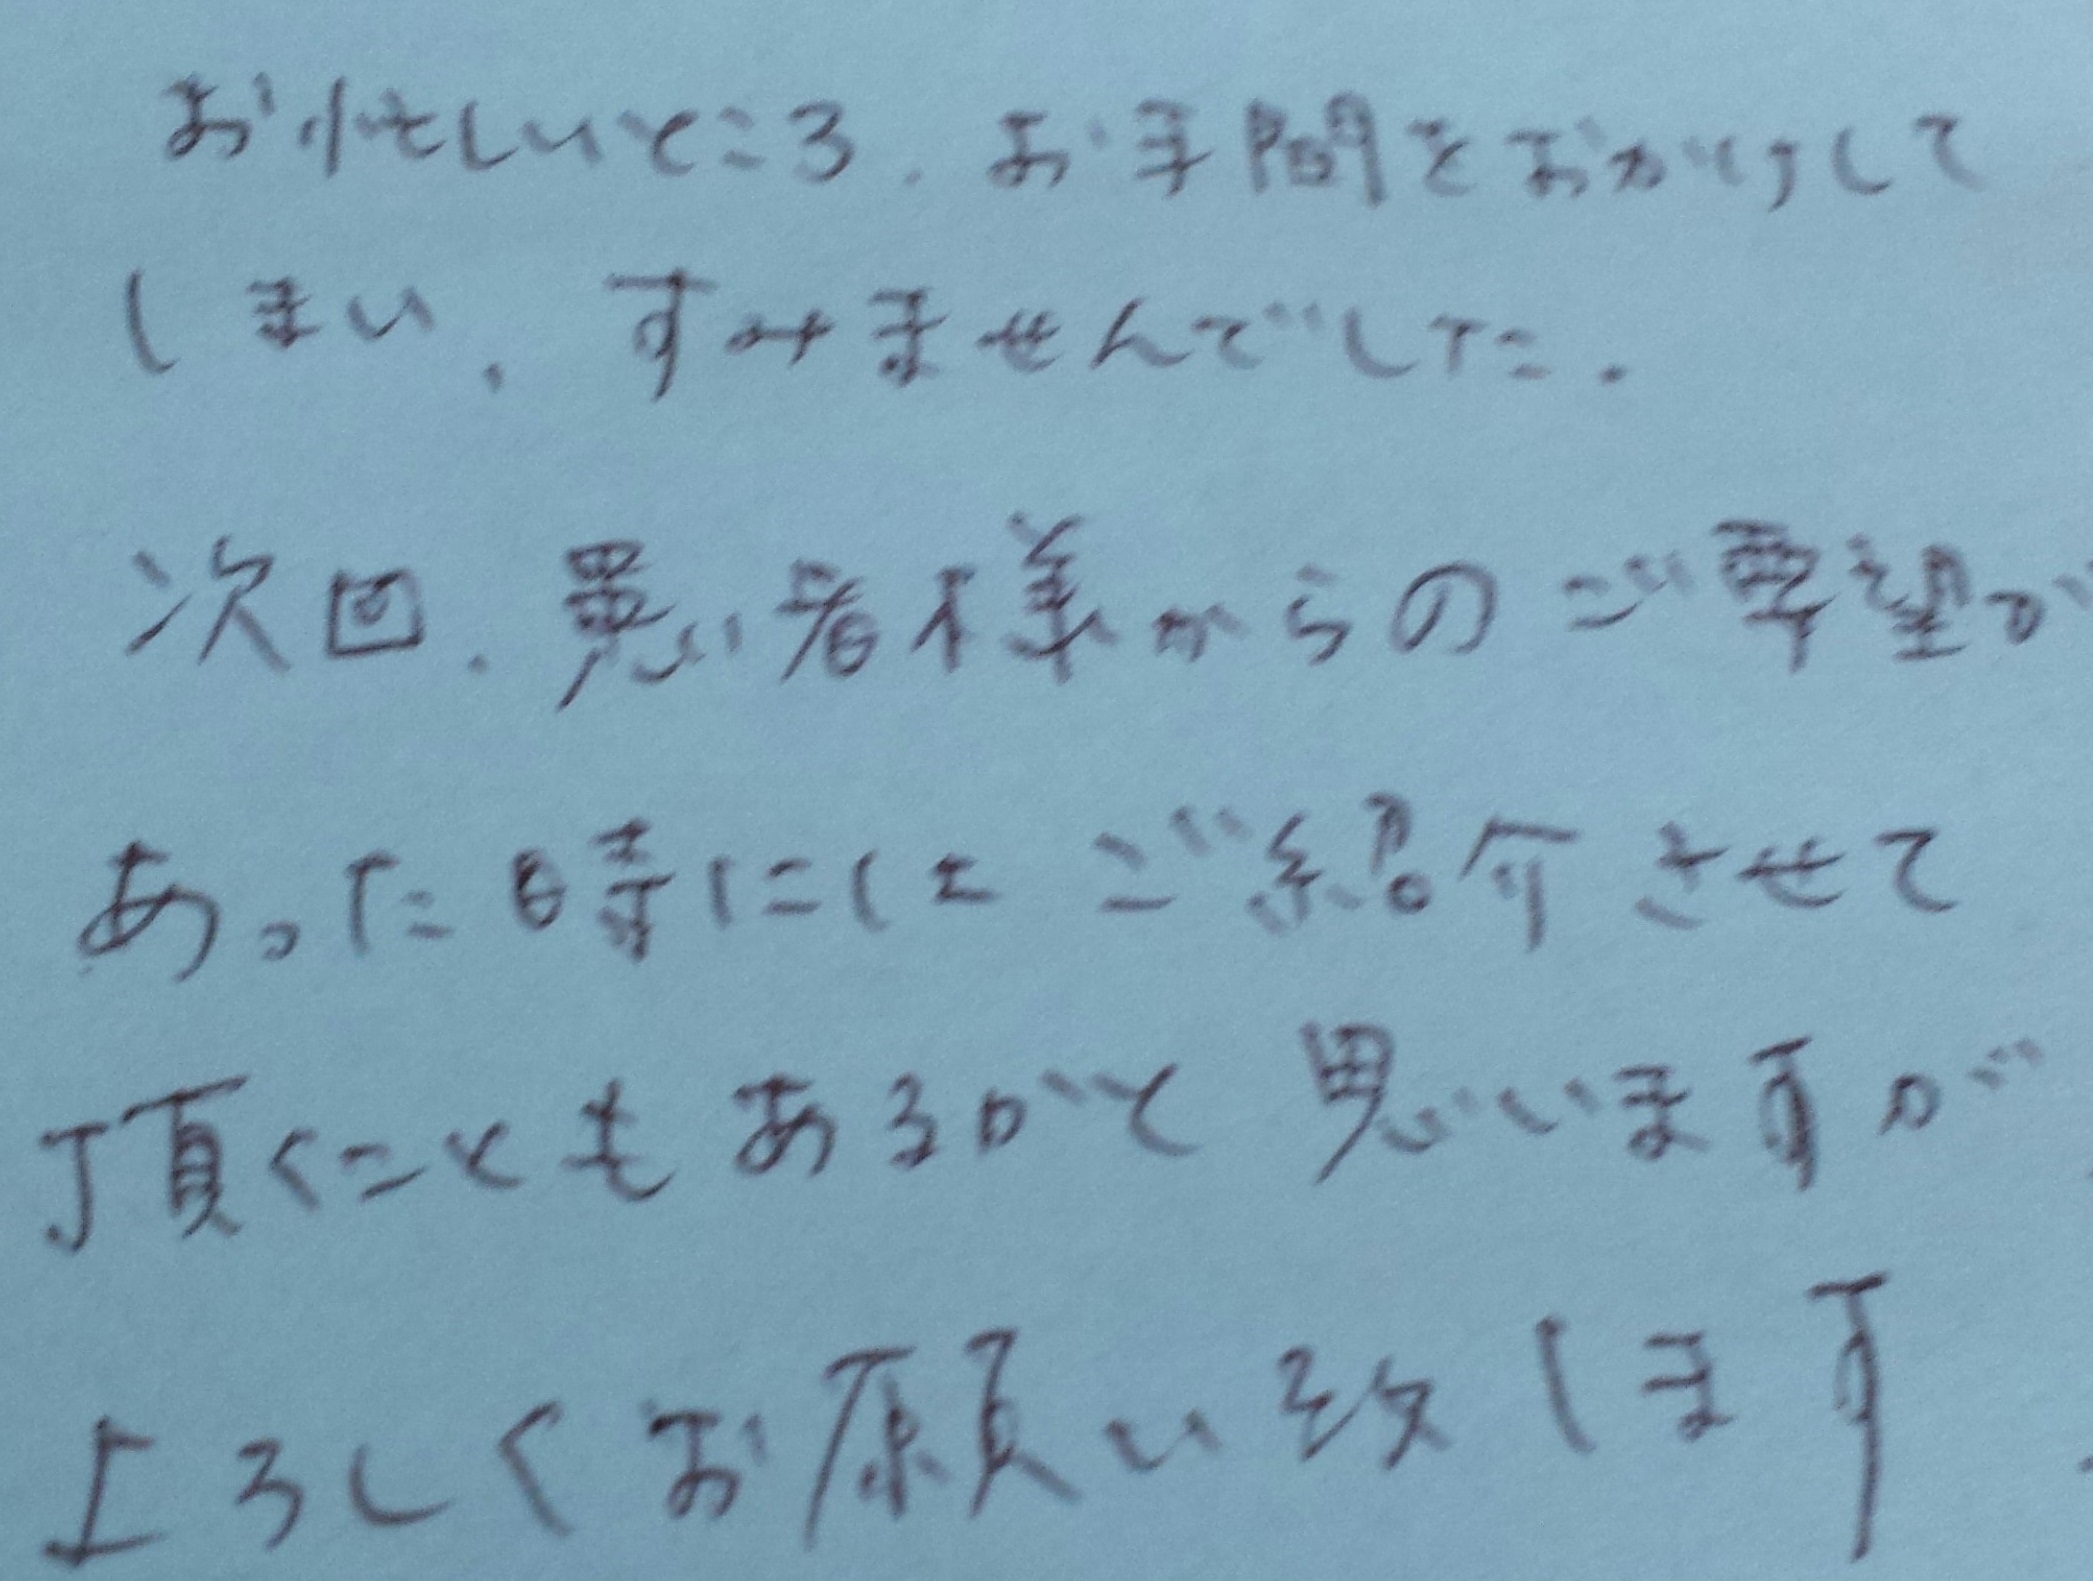 お忙しいところ、お手間をおかけして
しまい、すみませんでした。
次回、患い者様からのご要望が
あった時には ご紹介させて
頂くこともあるかと思いますが、
よろしくお願い致します。